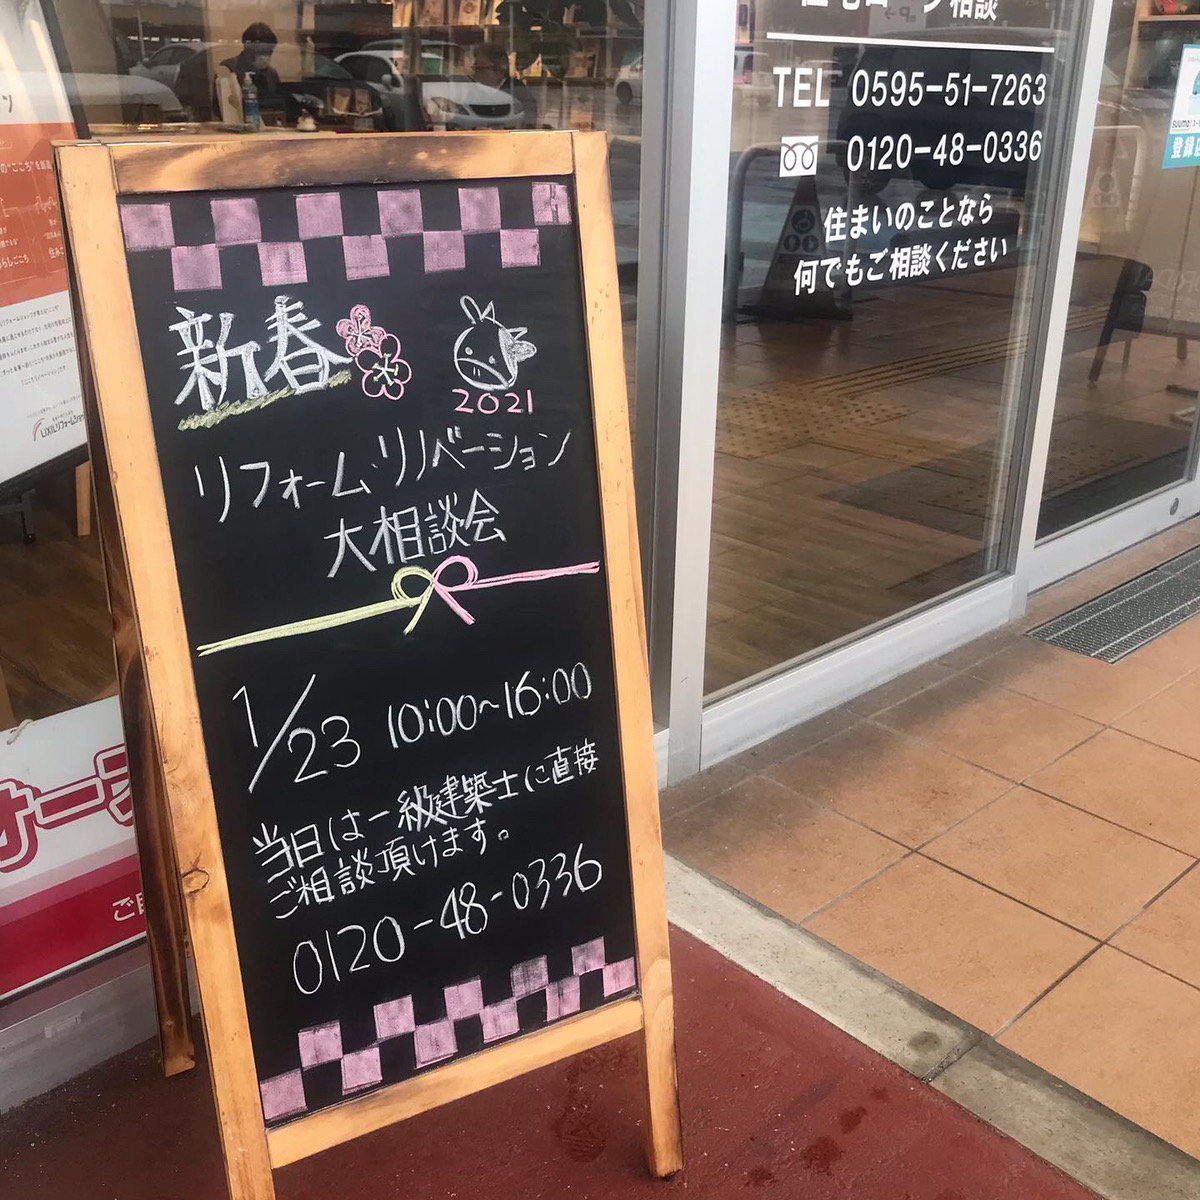 新春
2021
リフォーム、リノベーション
大相談会
1/23 10:00~16:00
当日は一級建築士に直接
ご相談頂けます。
0120-48-0336
TEL 0595-51-7263
0120-48-0336
住まいのことなら
何でもご相談ください
suumo
LIXILリフォームショップ